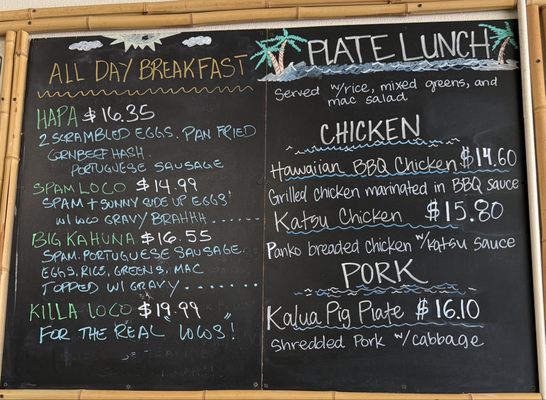 ALL DAY BREAKFAST
HAPA $16.35
2 SCRAMBLED EGGS. PAN FRIED
CORNBEEF HASH.
PORTUGUESE SAUSAGE
SPAM LOCO $14.99
SPAM + SUNNY SIDE UP EGGS'
W/ LOCO GRAVY BRAHHH.......
BIG KAHUNA $16.55
SPAM, PORTUGUESE SAUSAGE
EGGS, RICE, GREENS, MAC
TOPPED W/ GRAVY........
KILLA LOCO $19.99
FOR THE REAL LOCOS!
PLATE LUNCH
Served w/rice, mixed greens, and
mac salad
CHICKEN
Hawaiian BBQ Chicken $14.60
Grilled chicken marinated in BBQ sauce
Katsu Chicken $15.80
Panko breaded chicken w/katsu sauce
PORK
Kalua Pig Plate $16.10
Shredded Pork w/cabbage